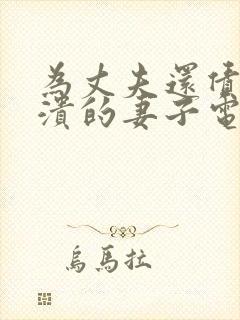 為丈夫還債
潰的妻子電
烏馬拉